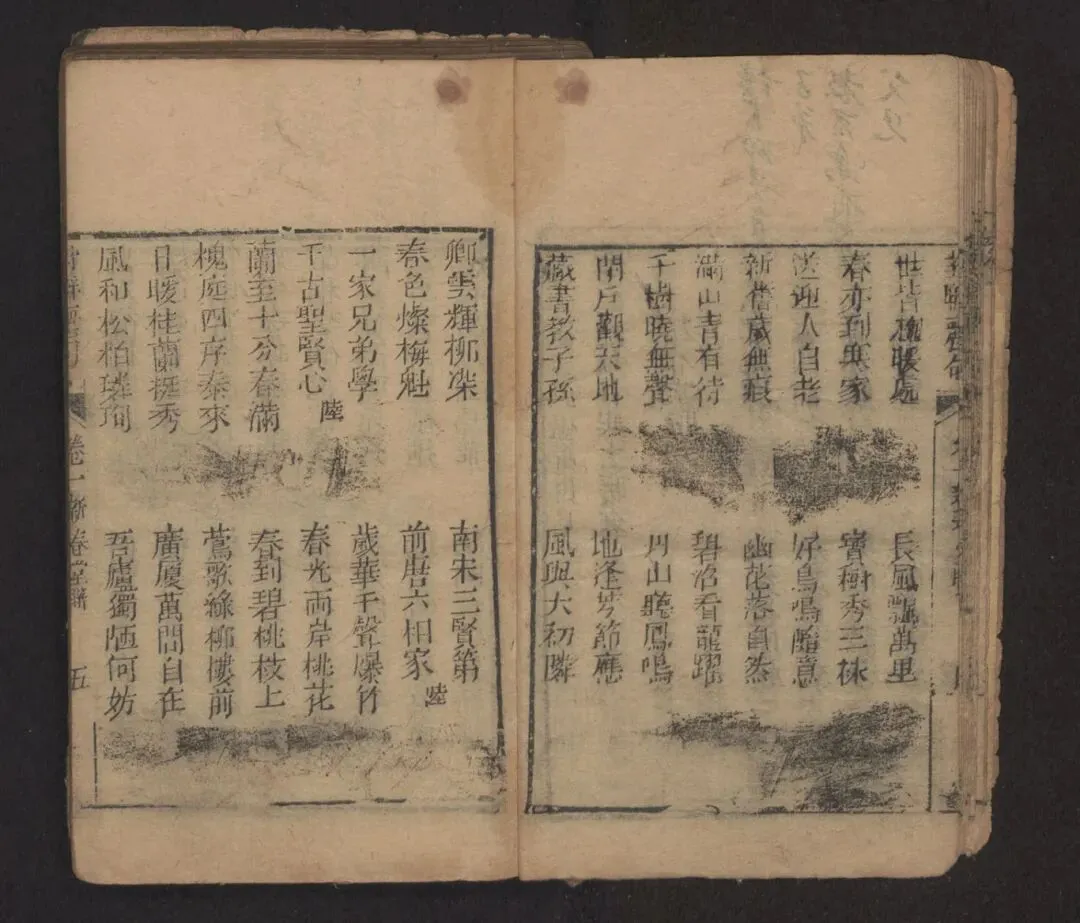 世皆趨暖處
春亦到寒家
送迎人自老
新舊歲無痕
滿山青有待
千樹曉無聲
閉戶觀天地
藏書教子孫
長風飄萬里
寶樹秀三株
好鳥鳴隨意
幽花落自然
碧沼看龍躍
丹山聽鳳鳴
地逢芳節應
風與大初隣
卿雲輝柳
春色燦梅魁
一家兄弟學
千古聖賢心 陸
蘭至十分春滿
槐庭四序泰來
日暖桂蘭挺秀
風和松柏璘珣
南宋三賢第
前唐六相家 陸
歲華千聲爆竹
春光両岸桃花
春到碧桃枝上
鶯歌綠柳樓前
廣廈萬間自在
吾廬獨陋何妨
卷一 新春堂聯 五